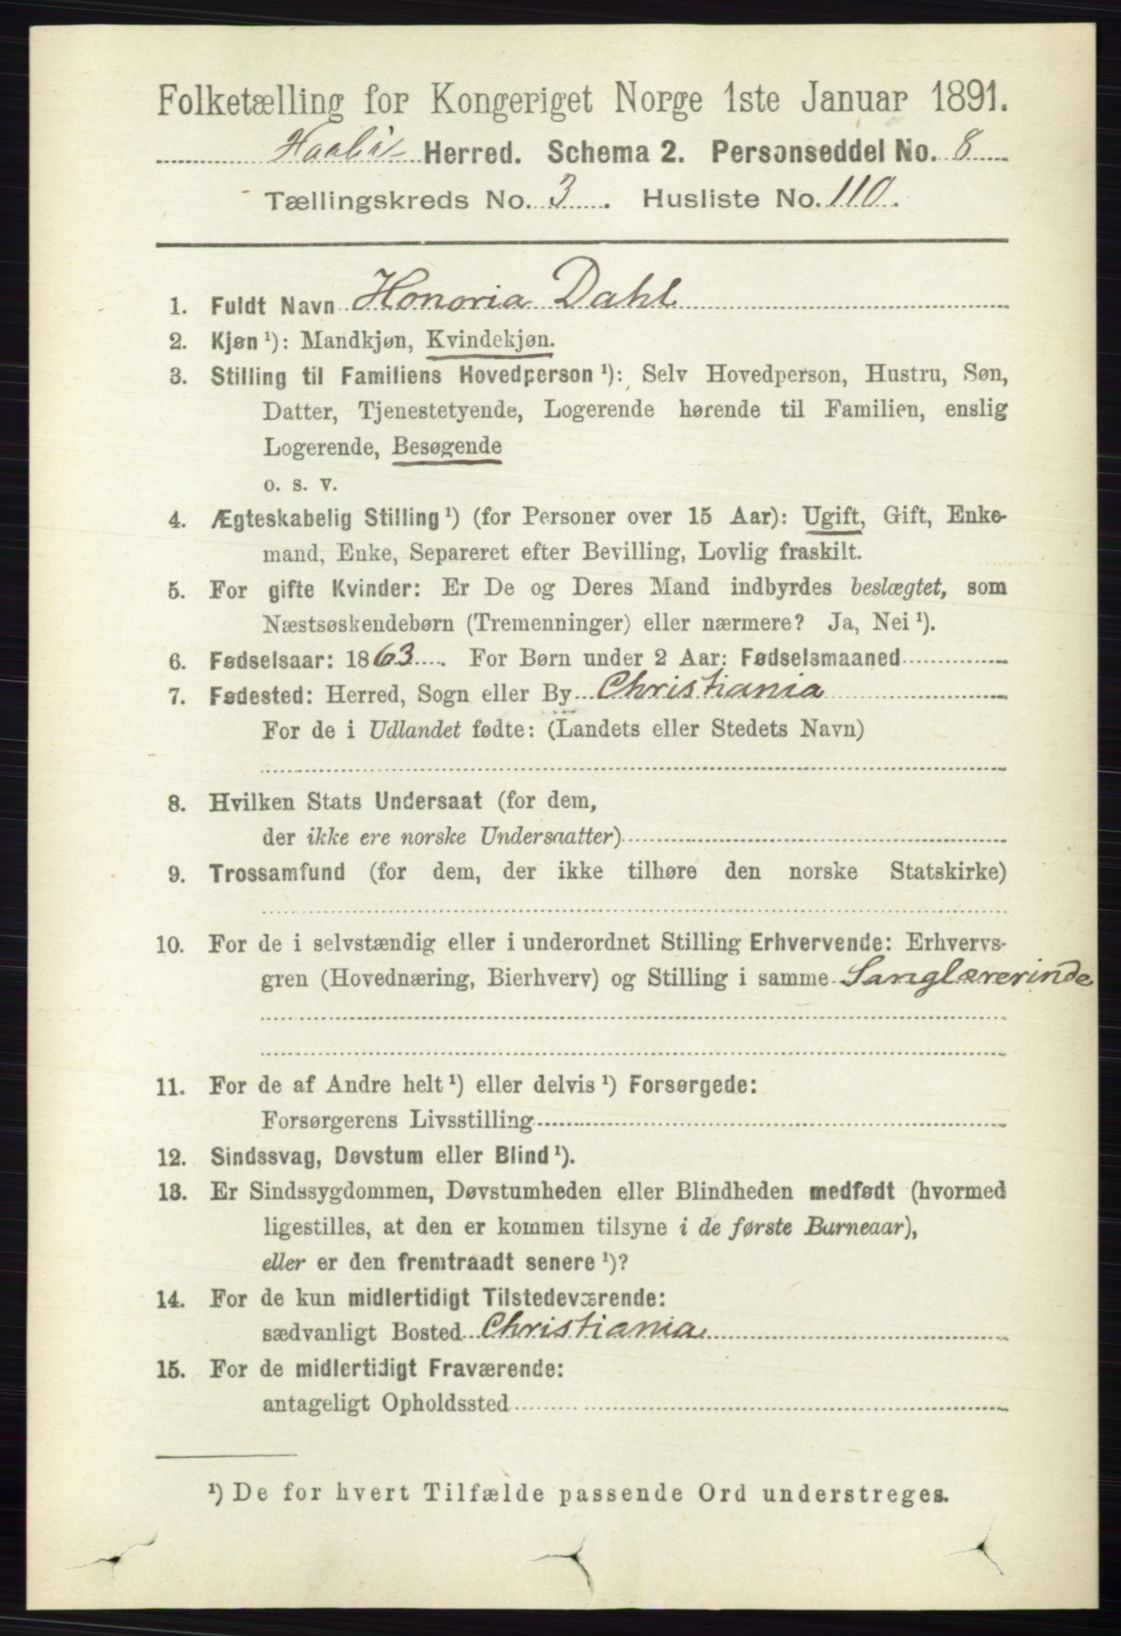 Folketælling for Kongeriget Norge 1ste Januar 1891.
Haabøl Herred. Schema 2. Personseddel No. 8
Tællingskreds No. 3. Husliste No. 110.
1. Fuldt Navn Honoria Dahl
2. Kjøn ¹): Mandkjøn, Kvindekjøn.
3. Stilling til Familiens Hovedperson ¹): Selv Hovedperson, Hustru, Søn,
Datter, Tjenestetyende, Logerende hørende til Familien, enslig
Logerende, Besøgende
o. s. v.
4. Ægteskabelig Stilling ¹) (for Personer over 15 Aar): Ugift, Gift, Enke-
mand, Enke, Separeret efter Bevilling, Lovlig fraskilt.
5. For gifte Kvinder: Er De og Deres Mand indbyrdes beslægtet, som
Næstsøskendebørn (Tremenninger) eller nærmere? Ja, Nei ¹).
6. Fødselsaar: 1863. For Børn under 2 Aar: Fødselsmaaned
7. Fødested: Herred, Sogn eller By Christiania
For de i Udlandet fødte: (Landets eller Stedets Navn)
8. Hvilken Stats Undersaat (for dem,
der ikke ere norske Undersaatter)
9. Trossamfund (for dem, der ikke tilhøre den norske Statskirke)
10. For de i selvstændig eller i underordnet Stilling Erhvervende: Erhvervs-
gren (Hovednæring, Bierhverv) og Stilling i samme Sanglærerinde
11. For de af Andre helt ¹) eller delvis ¹) Forsørgede:
Forsørgerens Livsstilling
12. Sindssvag, Døvstum eller Blind ¹).
13. Er Sindssygdommen, Døvstumheden eller Blindheden medfødt (hvormed
ligestilles, at den er kommen tilsyne i de første Barneaar),
eller er den fremtraadt senere ¹)?
14. For de kun midlertidigt Tilstedeværende:
sædvanligt Bosted Christiania
15. For de midlertidigt Fraværende:
antageligt Opholdssted
¹) De for hvert Tilfælde passende Ord understreges.